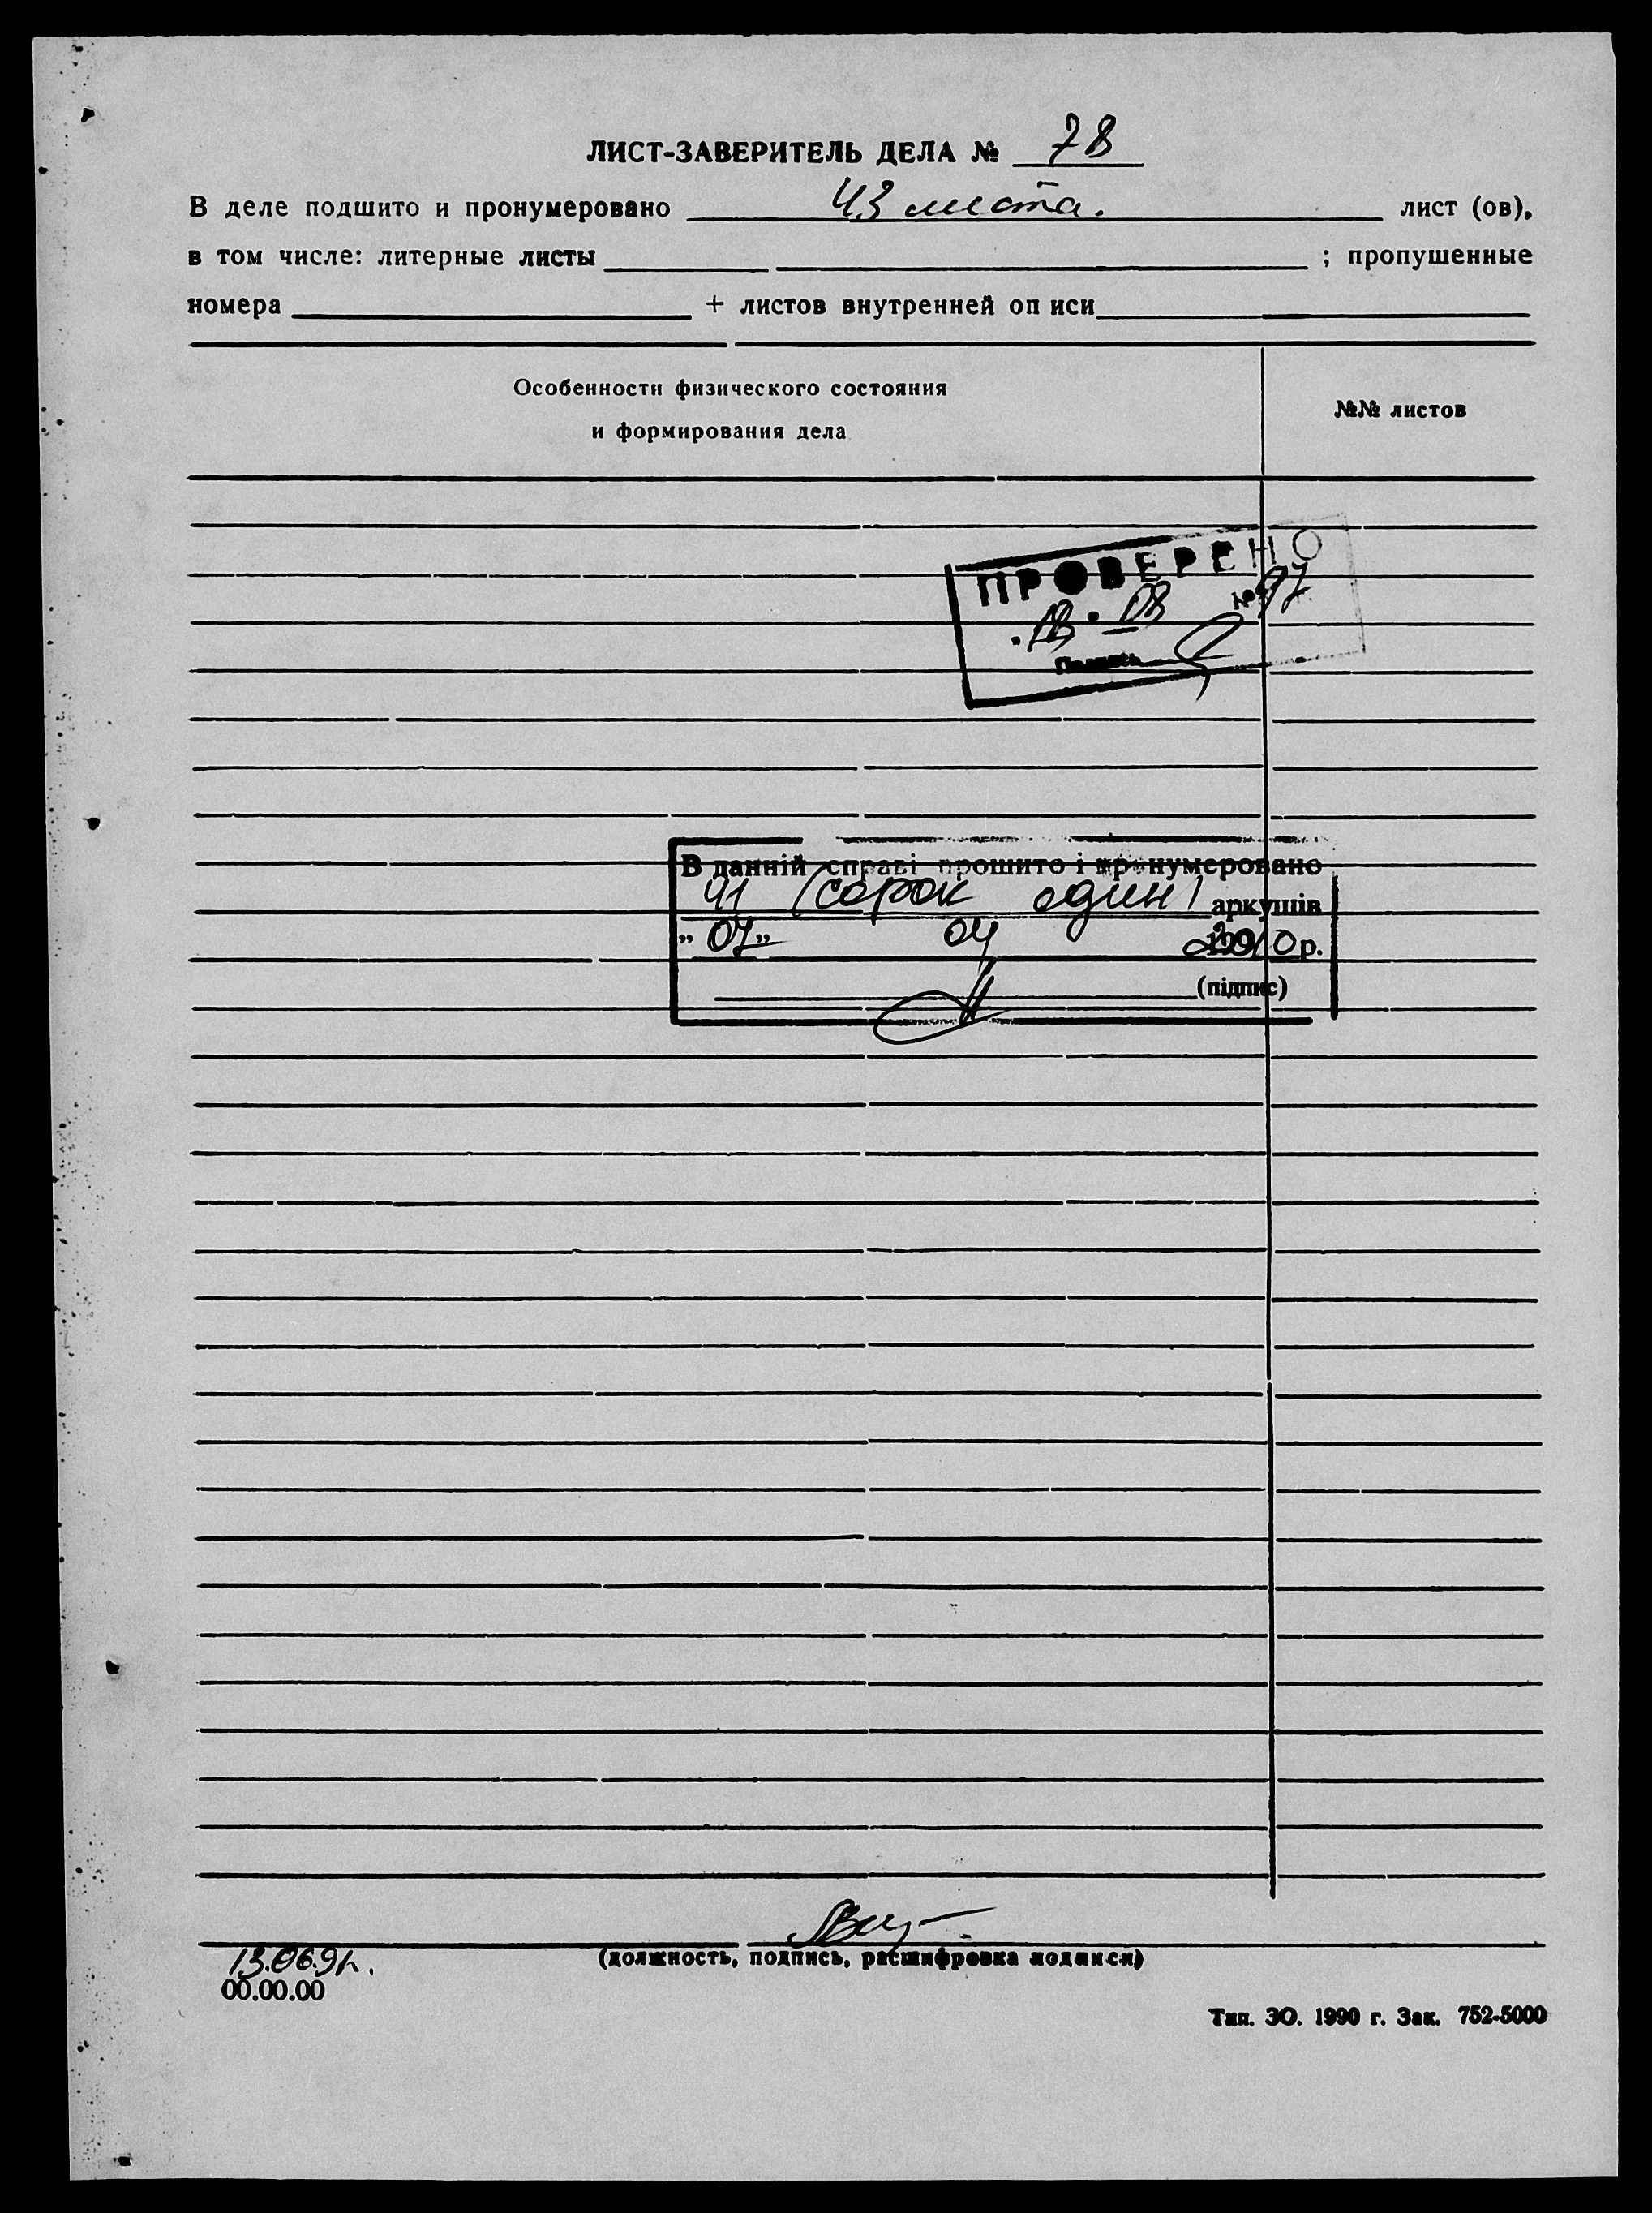 ЛИСТ-ЗАВЕРИТЕЛЬ ДЕЛА № 78
В деле подшито и пронумеровано 43 листа. лист (ов),
в том числе: литерные листы ; пропушенные
номера + листов внутренней оп иси
Особенности физического состояния
и формирования дела
№№ листов
ПРОВЕРЕНО
08 97
Подпись
В данній справі прошито і пронумеровано
41 (сорок один) аркушів
„ 07 „ 04 2010 р.
(підпис)
13.06.91г.
(должность, подпись, расшифровка подписи)
00.00.00
Тип. ЗО. 1990 г. Зак. 752-5000